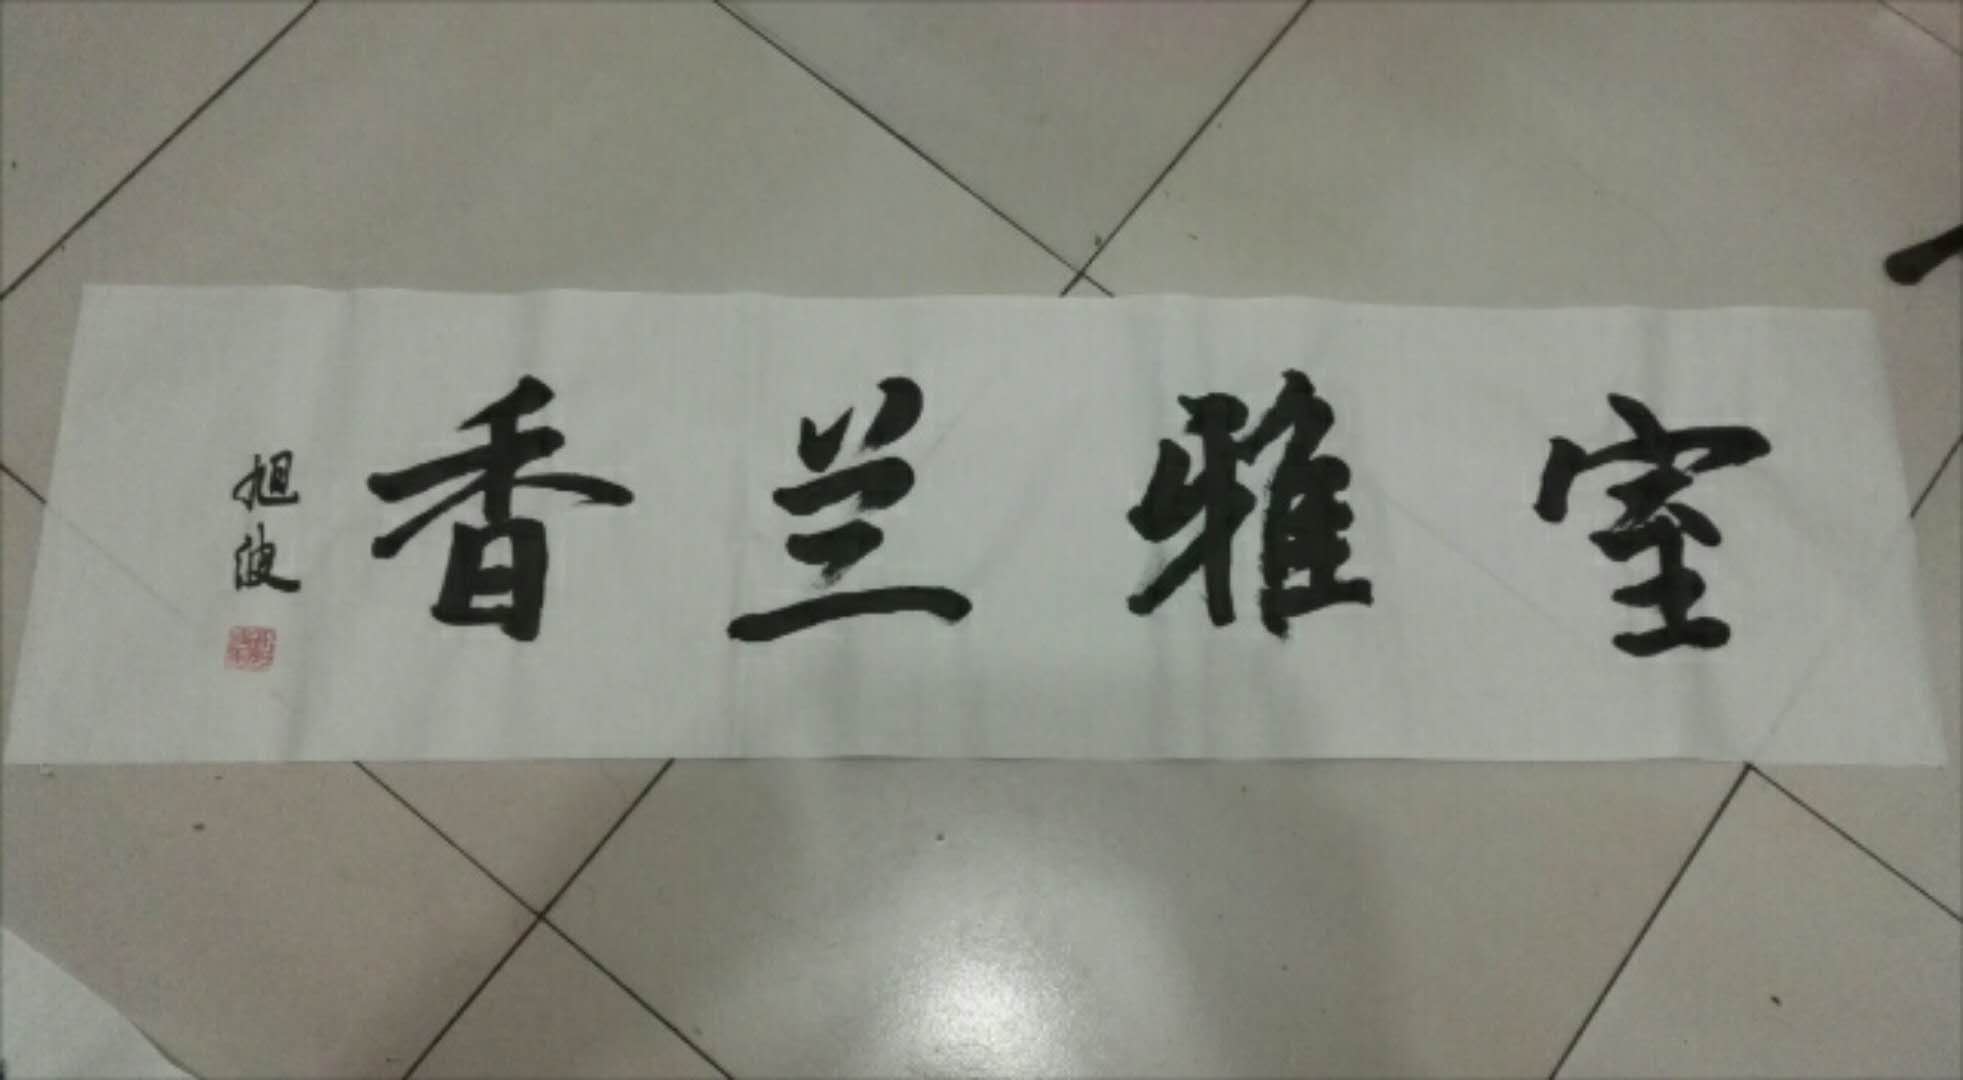 室雅兰香
旭波